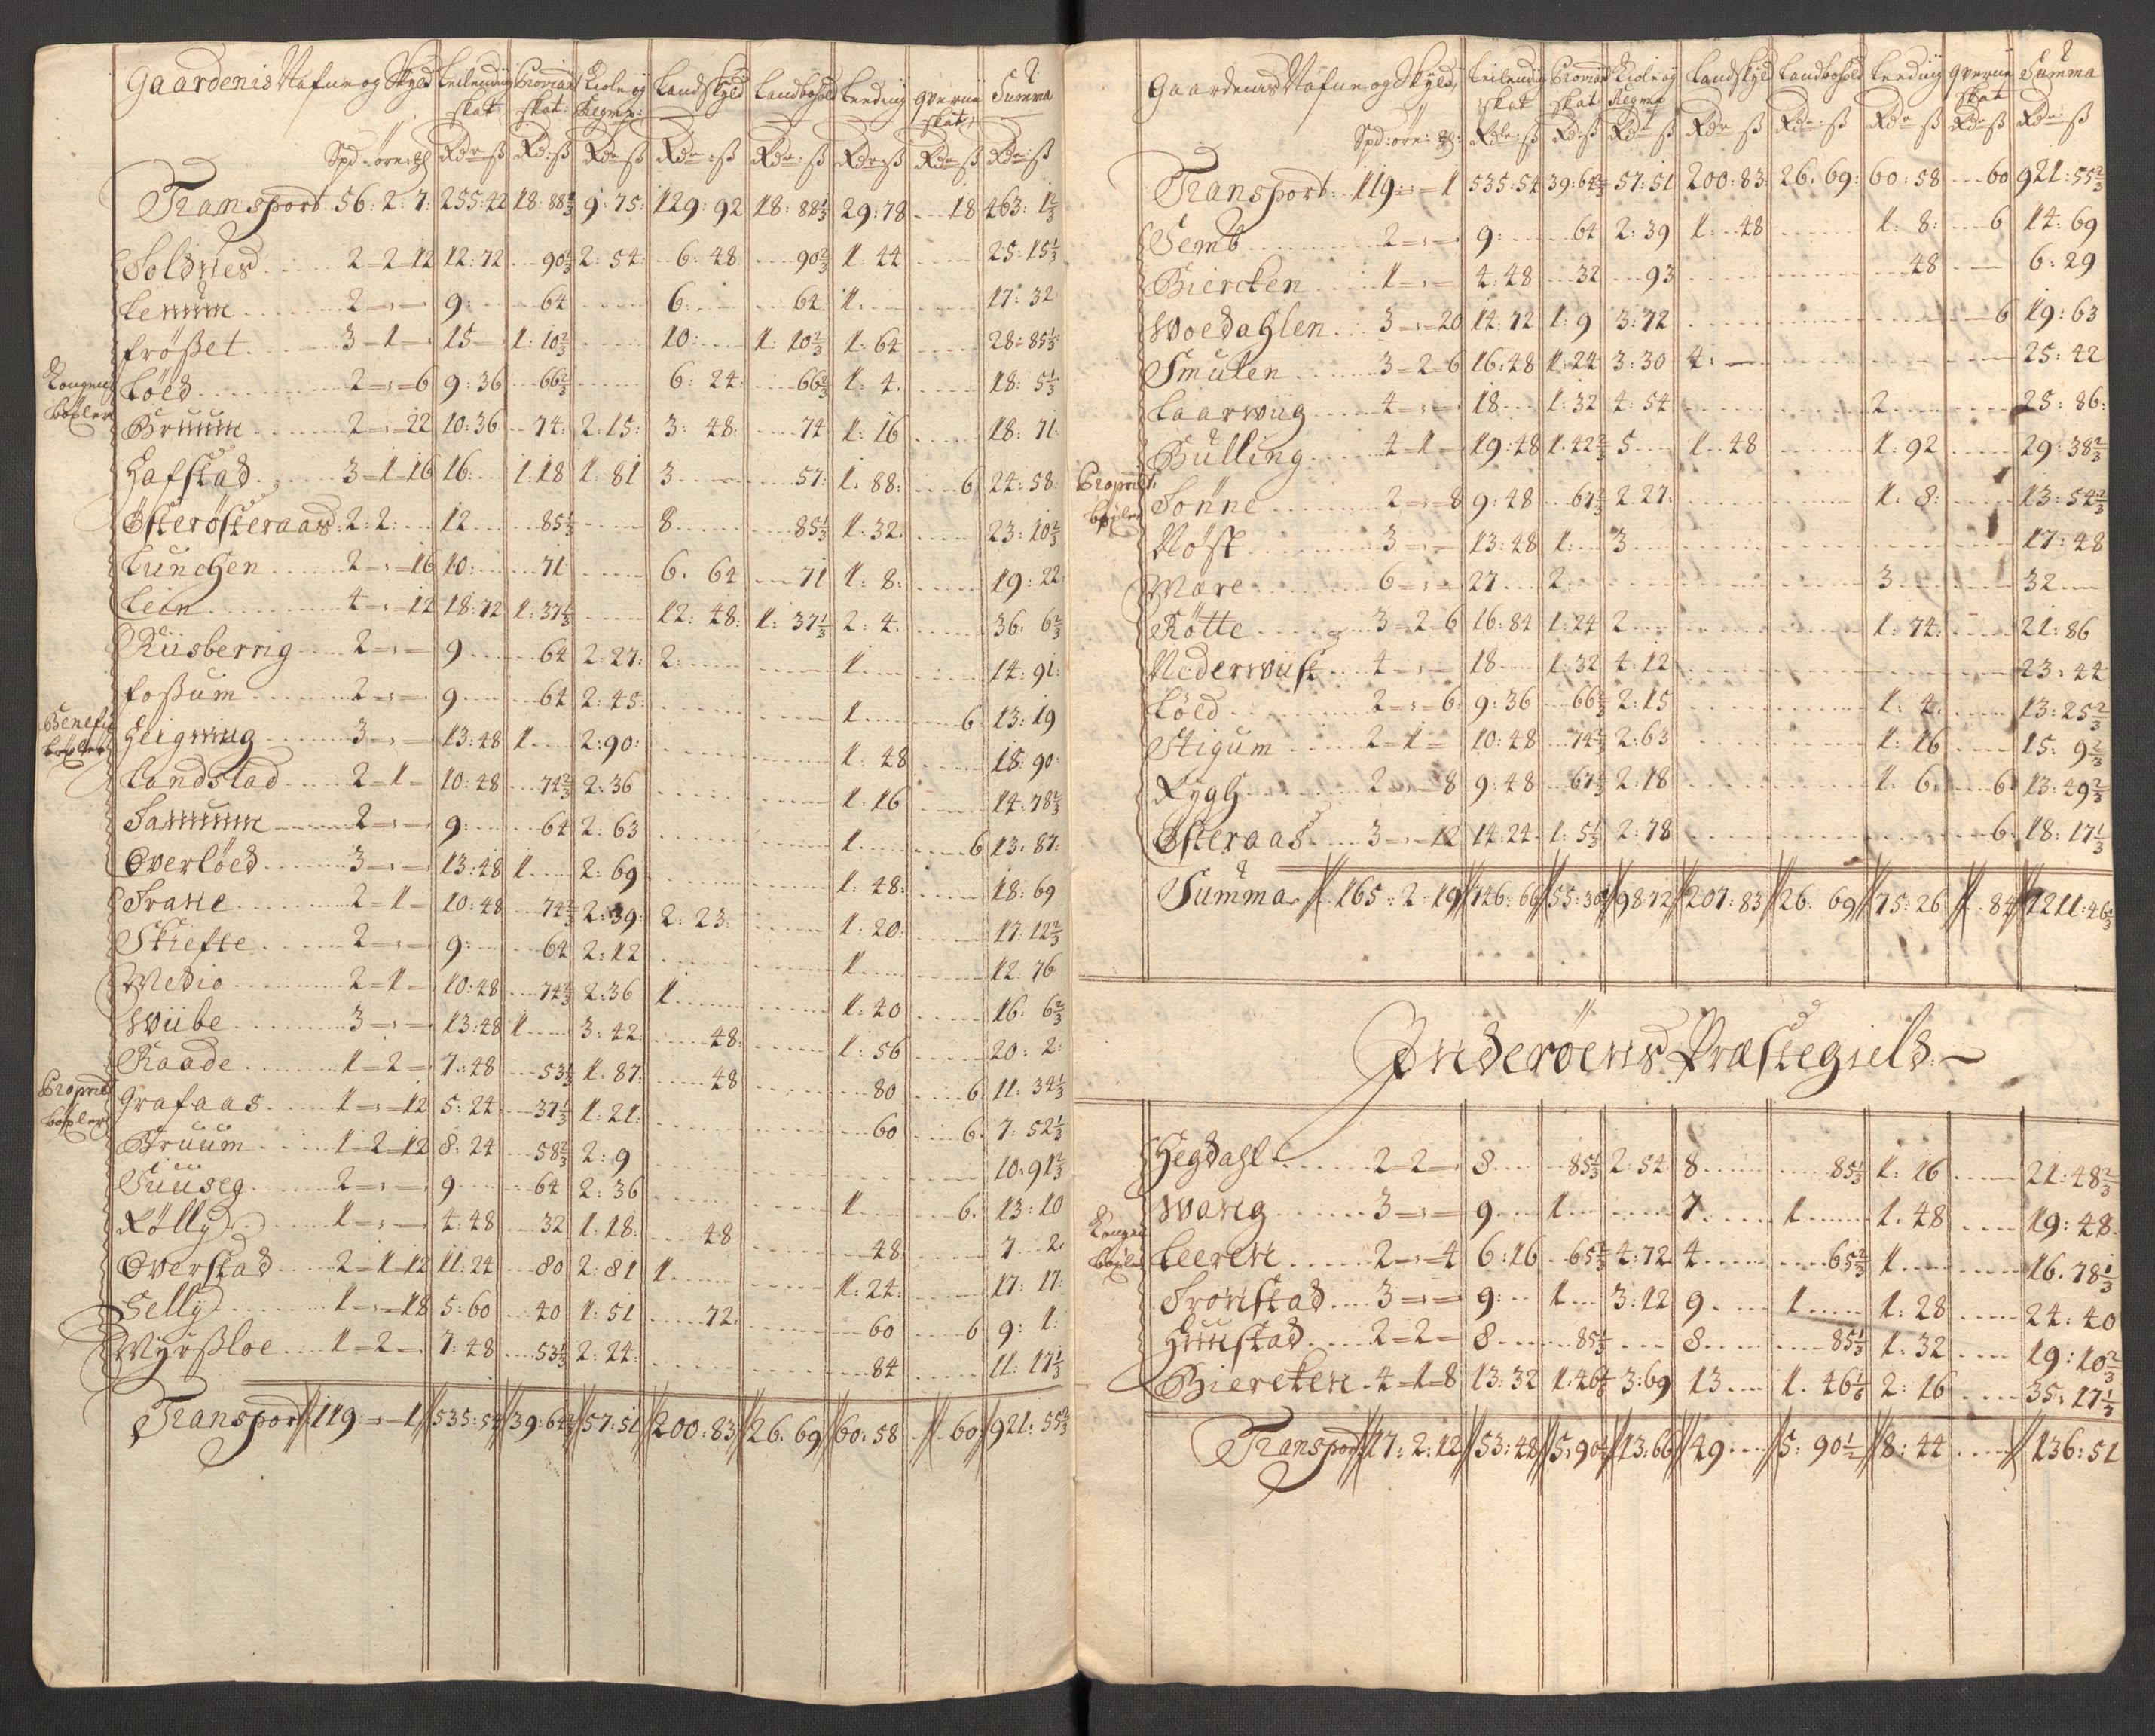 Gaardenis Nafne og Skyld Leilending skat Proviand skat: Kiole og Regmp: Landskyld Landbohold Leeding Qverne skat Summa
Spd: øre: # Rdr ß Rd: ß Rdr ß Rdr: ß Rdr: ß Rdr ß Rdr ß Rdr: ß
Transport 56: 2: 7: 255:42 18:88⅓ 9:75: 129:92 18:88⅓ 29:78 18 463:1⅔
Soldnes 2-2-12 12:72 90⅔ 2:54: 6:48 90⅔ 1 44 25:15⅓
Lenum 2-„- 9: 64 6: 64 1: 17:32
frößet 3-1- 15 1:10⅔ 10: 1:10⅔ 1:64 28:85⅓
Kongens bøxler
Løed 2-„-6 9:36 66⅔ 6:24 66⅔ 1:4. 18:5⅓
Bruum 2-„-22 10:36 74: 2:15: 3:48: 74 1:16 18:71
Hafstad 3-1-16 16: 1:18 1:81 3 57: 1:88: 6 24:58
Østerøsteraas 2:2: 12 85⅓ 8 85⅓ 1:32. 23:10⅔
Lunchen 2-„-16 10: 71 6:64 71 1:8: 19:22
Lein 4-„-12 18:72 1:37⅓ 12:48: 1:37⅓ 2:4. 36:6⅔
Riisberrig 2-„- 9 64 2:27: 2: 1 14:91:
foßum 2-„- 9 64 2:45: 1 6 13:19
Benefic bøxler
Heigning 3-„- 13:48 1 2:90: 1:48 18:90
Landstad 2-1- 10:48 74⅔ 2:36 1:16 14:78⅔
Samuum 2-„- 9: 64 2:63 1 6 13:87:
Overløed 3-„- 13:48 1 2:69 1:48: 18:69
Trane 2-1- 10:48 74⅔ 2:39: 2:23: 1:20: 17:12⅔
Skiefte 2-„- 9: 64 2:12 1 12:76
Medio 2-1- 10:48 74⅔ 2:36 1 1:40 16:6⅔
Wiibe 3-„- 13:48 1 3:42 48: 1:56 20:2:
Raade 1-2- 7:48 53⅓ 1:87: 48 80 6 11:34⅓
Propriet: bøxler
Grafaas 1-„-12 5:24 37⅓ 1:21: 60 6. 7:52⅓
Bruum 1-2-12 8:24 58⅔ 2:9 10:91⅔
Tuuseg 2-„- 9 64 2:36 1 6. 13:10
Rølly 1-„- 4:48 32 1:18: 48 48 7 2
Overstad 2-1-12 11:24 80 2:81 1 1:24: 17:17:
Selly 1-„-18 5:60 40 1:51 72. 60 6 9:1:
Myrßloe 1-2- 7:48 53⅓ 2:24: 84 11:17⅓
Transport 119:„-1 535:54 39:64⅔ 57:51 200:83 26:69 60:58 60 921:55⅔
Gaardenis Nafne og Skyld, Leilending skat Proviand skat Kiole og Regmp Landskyld Landbohold Leeding Qverne skat Summa
Spd: øre: #: Rdr: ß Rd: ß Rdr ß Rdr ß Rdr: ß Rdr ß Rdr ß Rdr: ß
Transport. 119:„-1 535:54 39:64⅔ 57:51 200:83: 26:69: 60:58 60 921:55⅔
Semb 2-„- 9: 64 2:39 1:48 1:8: 6 14:69
Biercken 1-„- 4:48 32 93 48 6:29
Woedahlen 3-„-20 14:72 1:9 3:72 6 19:63
Smulen 3-2-6 16:48 1:24 3:30 4:- 25:42
Laarwiig 4-„- 18 1:32 4:54 2 25:86:
Bulling 4-1- 19:48 1:42⅔ 5 1:48 1:92 29:38⅔
Propriet: bøxler
Sonne 2-„-8 9:48 67⅔ 2 27: 1:8: 13:54⅔
Røst 3-„- 13:48 1: 3 17:48
Mære 6-„- 27 2 3 32
Røtte 3-2-6 16:84 1:24 2 1:74: 21:86
Nederwiist 4-„- 18 1:32 4:12 23:44
Løed 2-„-6 9:36 66⅔ 2:15 1:4 13:25⅔
Stigum 2-1- 10:48 74⅔ 2:63 1:16 15:9⅔
Rygh 2-„-8 9:48 67⅔ 2:18 1:6 6 13:49⅔
Østeraas 3-„-12 14:24 1:5⅓ 2:78 6: 18:17⅓
Summa 165:2:19 746:66 55:30 98:72 207:83 26:69 75:26 1:84 1211:46⅔
Inderøens Præstegield
Hegdahl 2-2- 8 85⅓ 2:54 8 85⅓ 1:16 21:48⅔
Wang 3-„- 9 1 7 1 1:48 19:48
Kongens bøxler
Leeren 2-„-4 6:16 65⅔ 4:72 4 65⅔ 1 16:78⅓
Tronstad 3-„- 9: 1 3:12 9 1 1:28 24:40
Huustad 2-2- 8 85⅓ 8 85⅓ 1:32 19:10⅔
Biercken 4-1-8 13:32 1:46⅙ 3:69 13 1:46⅙ 2:16 35:17⅓
Transport 17:2:12 53:48 5:90½ 13:66 49 5:90½ 8:44 136:51